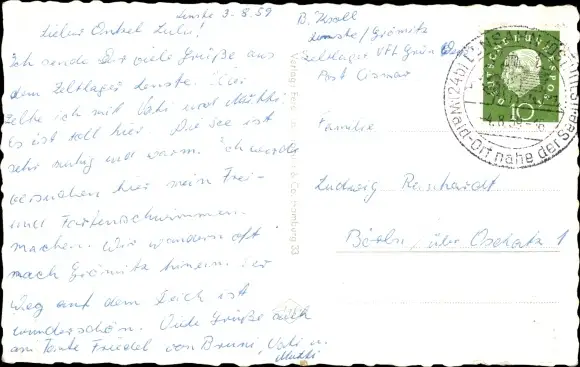 Lenste 3.8.59
Lieber Onkel Lulu!
Ich sende Dir viele Grüße aus
dem Zeltlager Lenste. Hier
zelte ich mit Vati und Mutti.
Es ist toll hier. Die See ist
sehr ruhig und warm. Ich werde
versuchen hier mein Frei-
und Fahrtenschwimmen
machen. Wir wandern oft
nach Grömitz hinein. Der
Weg auf dem Deich ist
wunderschön. Viele Grüße auch
an Tante Friedel von Bruni, Vati u.
Mutti
B.
Lenste/Grömitz
Zeltlager VfL Grün
Post Cismar
Familie
Ludwig Reinhardt
über Oschatz 1
DEUTSCHE BUNDESPOST
10
(24b)
4.8.59
Wald-Ort nahe der See